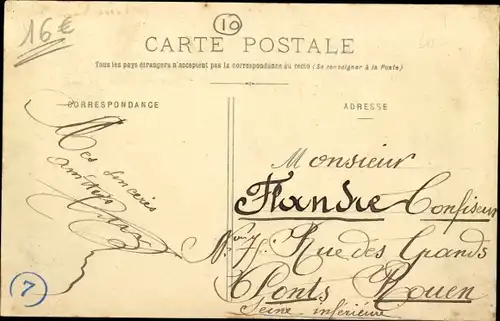 16€
10
CARTE POSTALE
Tous les pays étrangers n'acceptent pas la correspondance au recto (Se renseigner à la Poste)
CORRESPONDANCE
ADRESSE
Mes sincères
amitiés
Monsieur
Flandre Confiseur
Rue des Grands
Ponts Rouen
Seine inférieure
7